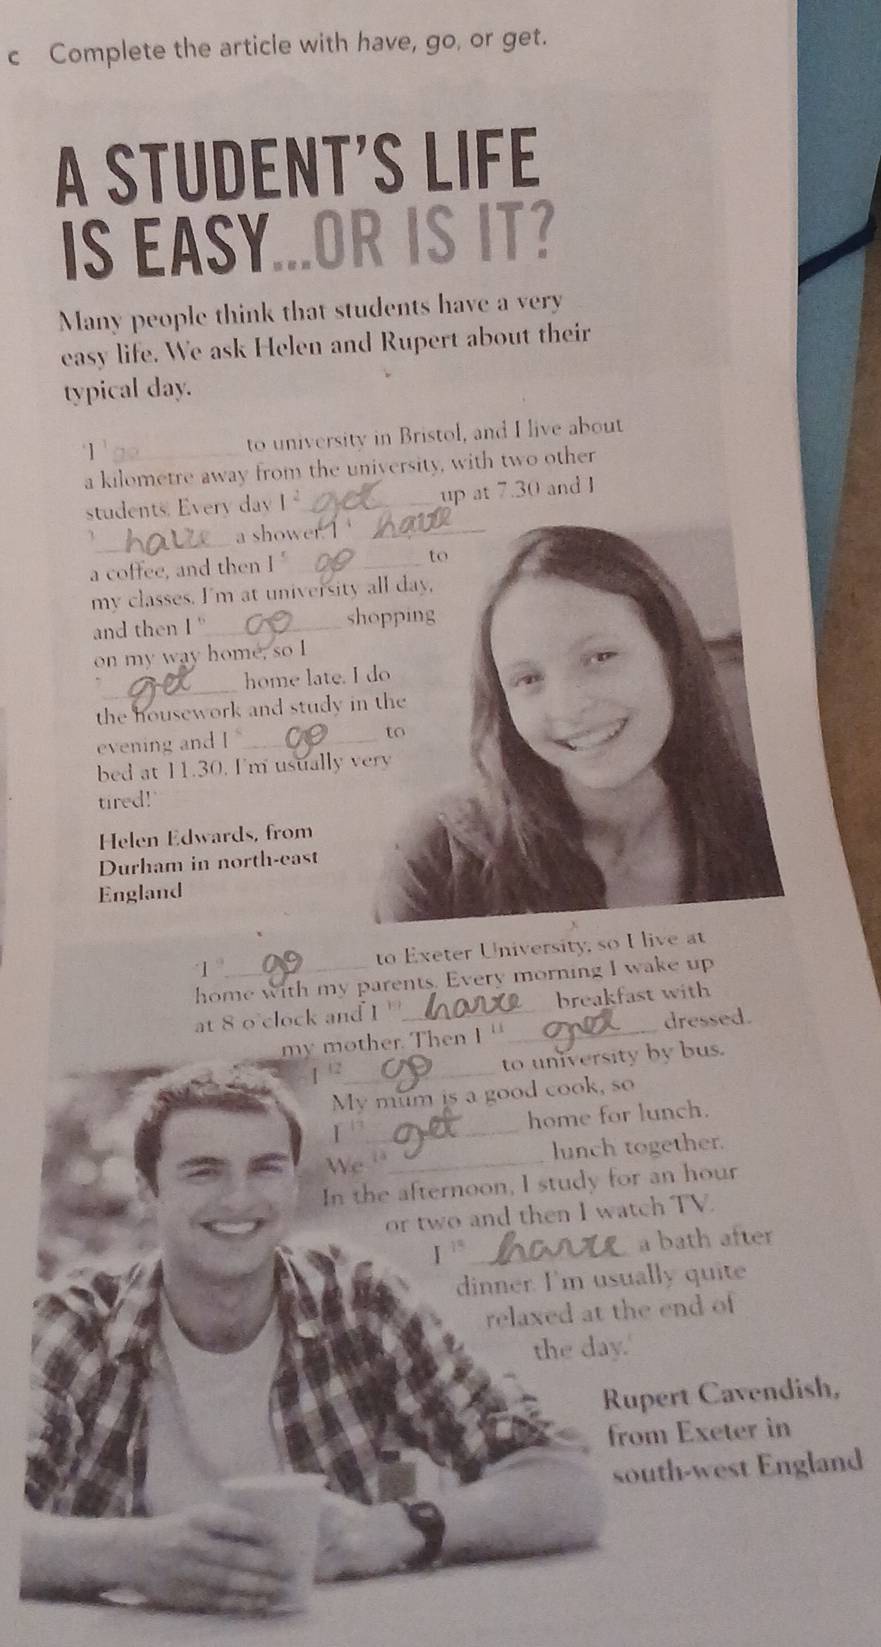 c Complete the article with have, go, or get.
A STUDENT'S LIFE
IS EASY...OR IS IT?
Many people think that students have a very
easy life. We ask Helen and Rupert about their
typical day.
'I 1 go to university in Bristol, and I live about
a kilometre away from the university, with two other
students. Every day I 2 get up at 7.30 and I
3 have a shower. I 4 have
a coffee, and then I 5 go to
my classes. I'm at university all day,
and then I 6 go shopping
on my way home, so I
7 get home late. I do
the housework and study in the
evening and I 8 go to
bed at 11.30. I'm usually very
tired!'
Helen Edwards, from
Durham in north-east
England
'I 9 go to Exeter University, so I live at
home with my parents. Every morning I wake up
at 8 o'clock and I 10 have breakfast with
my mother. Then I 11 get dressed.
I 12 go to university by bus.
My mum is a good cook, so
I 13 get home for lunch.
We 14 ______ lunch together.
In the afternoon, I study for an hour
or two and then I watch TV.
I 15 have a bath after
dinner. I'm usually quite
relaxed at the end of
the day.'
Rupert Cavendish,
from Exeter in
south-west England